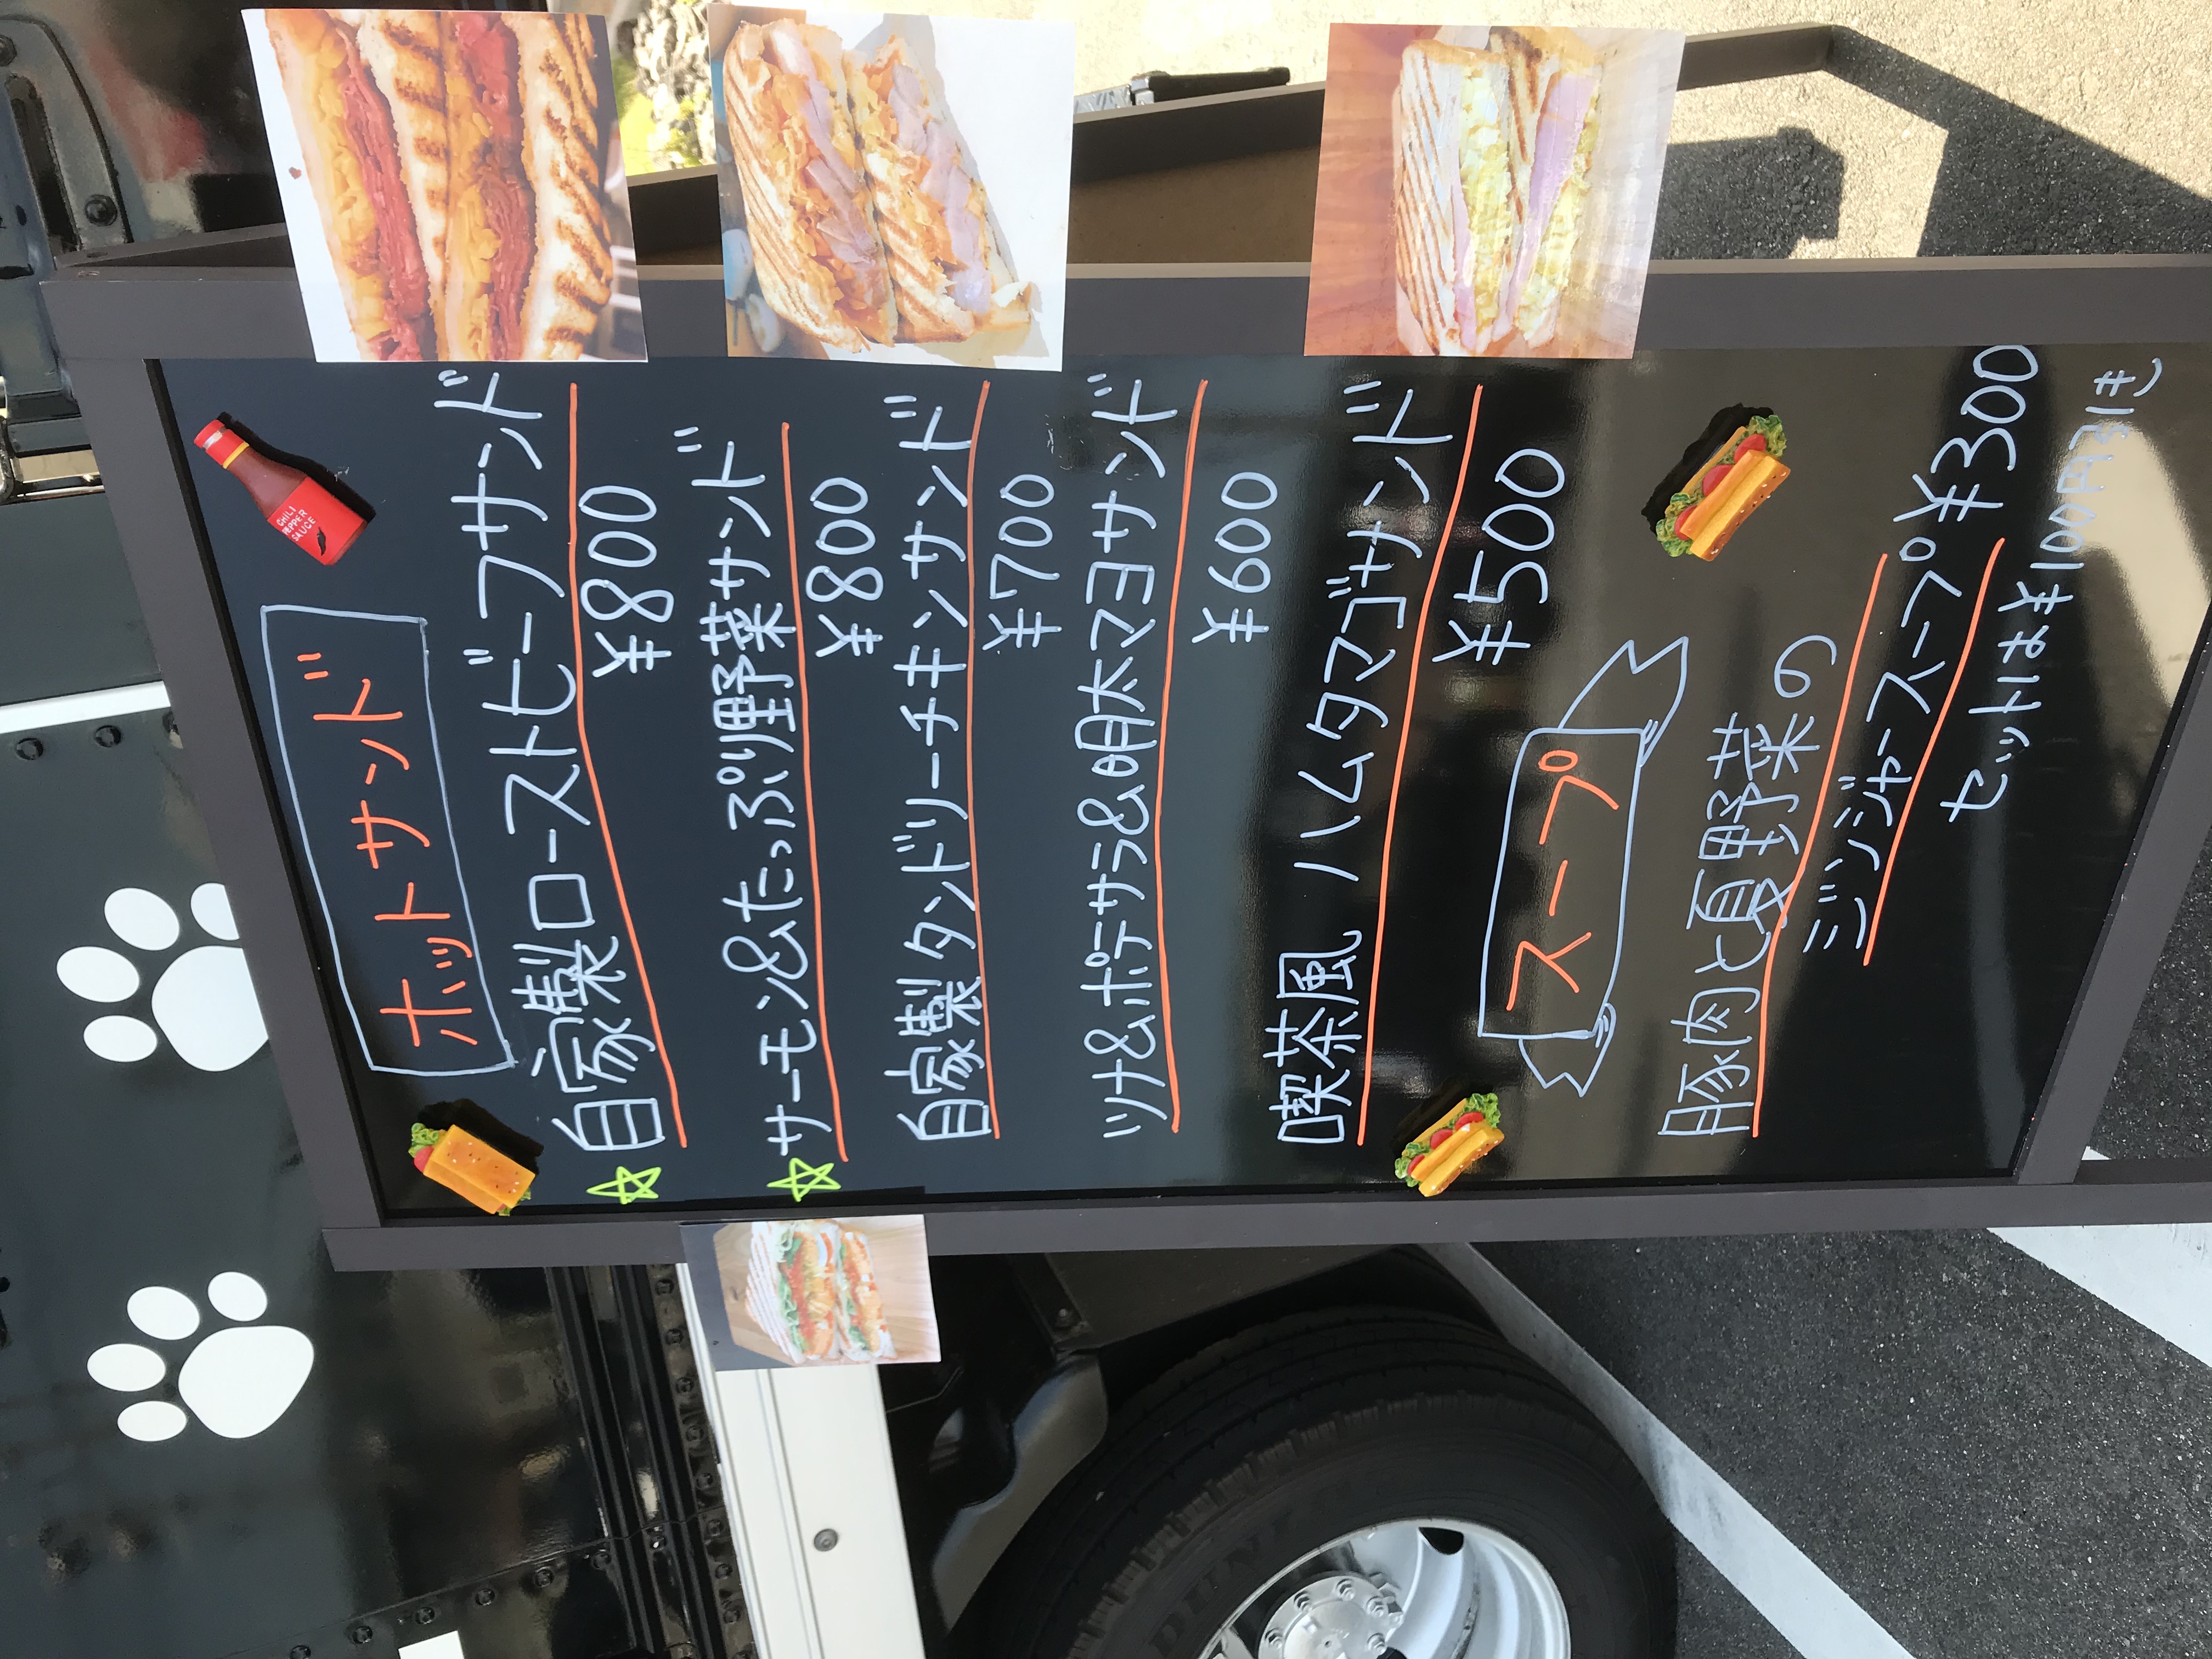 ホットサンド
☆自家製ローストビーフサンド
¥800
☆サーモン&たっぷり野菜サンド
¥800
自家製タンドリーチキンサンド
¥700
ツナ&ポテサラ&明太マヨサンド
¥600
喫茶風 ハムタマゴサンド
¥500
スープ
豚肉と夏野菜の
ジンジャースープ ¥300
セットは¥100円引き
CHILI
PEPPER
SAUCE